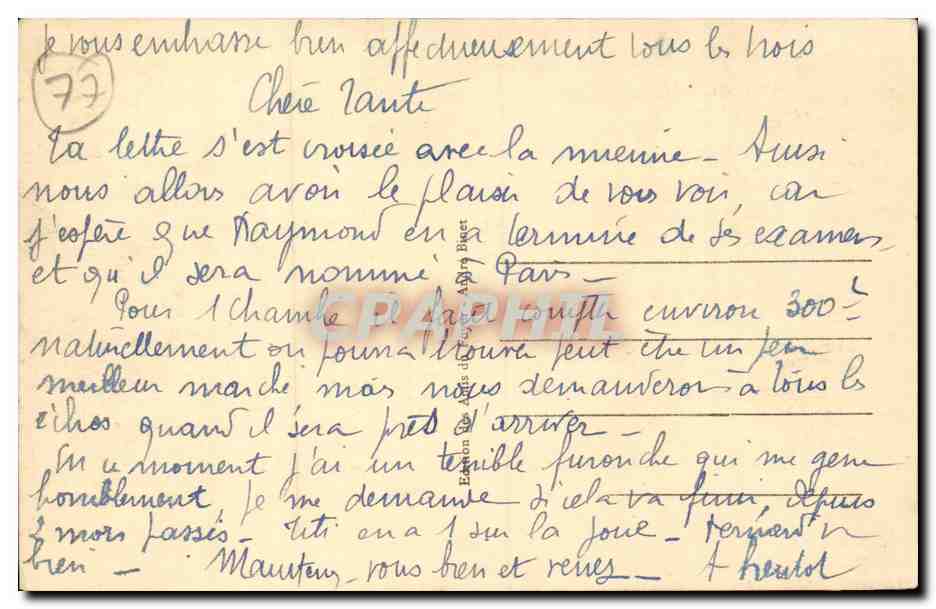 je vous embrasse bien affectueusement tous les trois
77
Chère Tante
Ta lettre s'est croisée avec la mienne - Ainsi
nous allons avoir le plaisir de vous voir, car
j'espère que Raymond en a terminé de ses examens,
et qu'il sera nommé Paris -
Pour 1 chambre il faut compter environ 300
naturellement on pourra trouver peut être un peu
meilleur marché mais nous demanderons à tous les
échos quand il sera près d'arriver -
En ce moment j'ai un terrible furoncle qui me gene
horriblement, je me demande si cela va finir, depuis
2 mois passés - Titi en a 1 sur la joue - Bernard va
bien - vous bien et venez -
Edition des Amis du Pays André Binet
CPARHIL